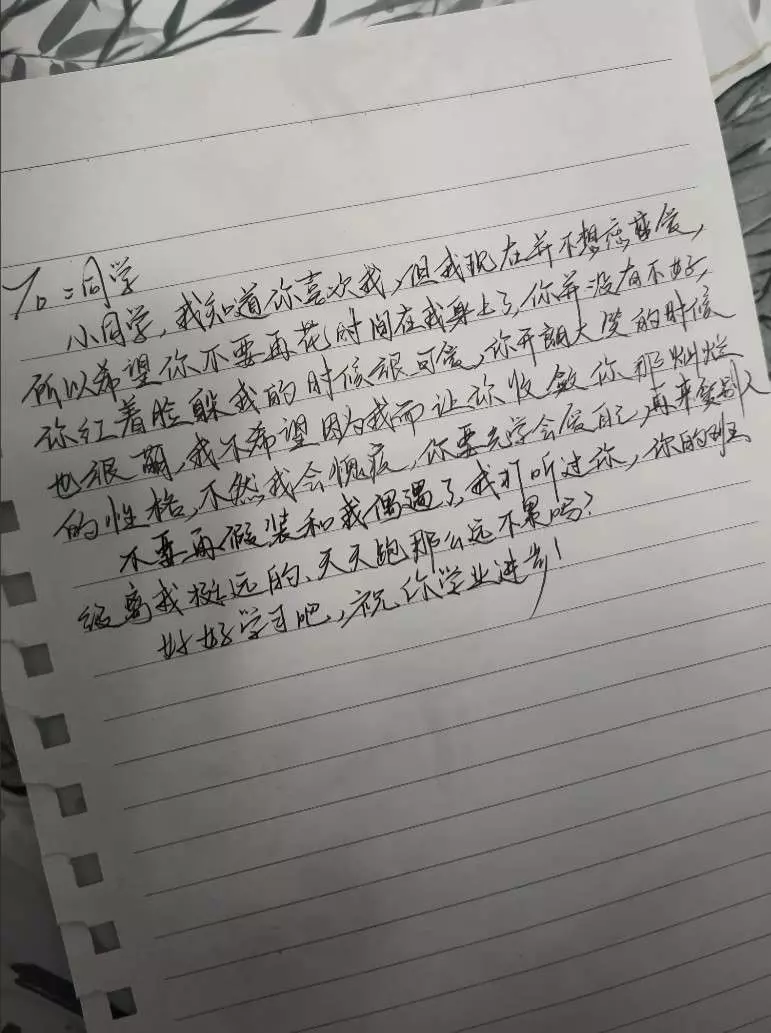 To:同学
小同学,我知道你喜欢我,但我现在并不想恋爱,
所以希望你不要再花时间在我身上了,你并没有不好,
你红着脸躲我的时候很可爱,你开朗大笑的时候
也很萌,我不希望因为我而让你收敛你那灿烂
的性格,不然我会愧疚,你要先学会爱自己,再来爱别人
不要再假装和我偶遇了,我打听过你,你的班
级离我挺远的,天天跑那么远不累吗?
好好学习吧,祝你学业进步!